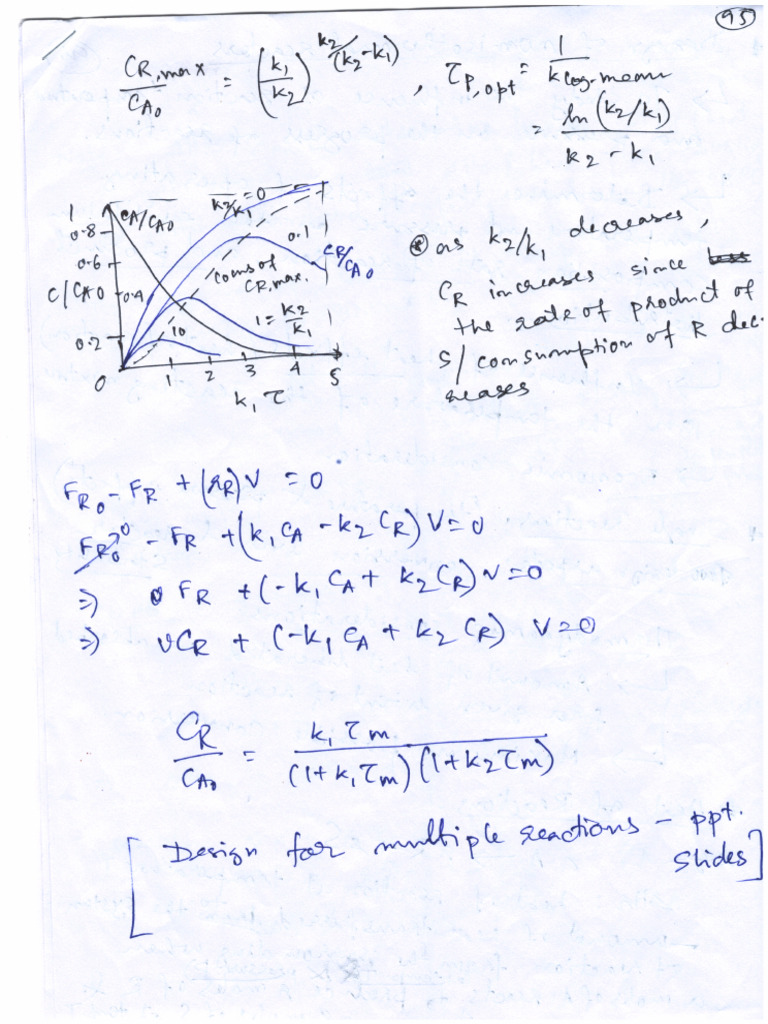 95
C_R,max / C_A0 = (k1/k2)^(k2/(k2-k1)) , τ_P,opt = 1 / k log-mean
= ln(k2/k1) / (k2 - k1)
1
CA/CA0
k2/k1 = 0
0.8
0.1
0.6
CR/CA0
Locus of
CR,max.
C/CA0
0.4
1 = k2/k1
0.2
10
0 1 2 3 4 5
k1 τ
* as k2/k1 decreases,
CR increases since
the rate of product of
S/consumption of R dec-
reases
F_R0 - F_R + (r_R)V = 0
F_R0→0 - F_R + (k1 CA - k2 CR) V = 0
⇒ F_R + (-k1 CA + k2 CR) V = 0
⇒ υCR + (-k1 CA + k2 CR) V = 0
CR / CA0 = k1 τm / (1+k1τm)(1+k2τm)
[Design for multiple reactions - ppt.
slides]